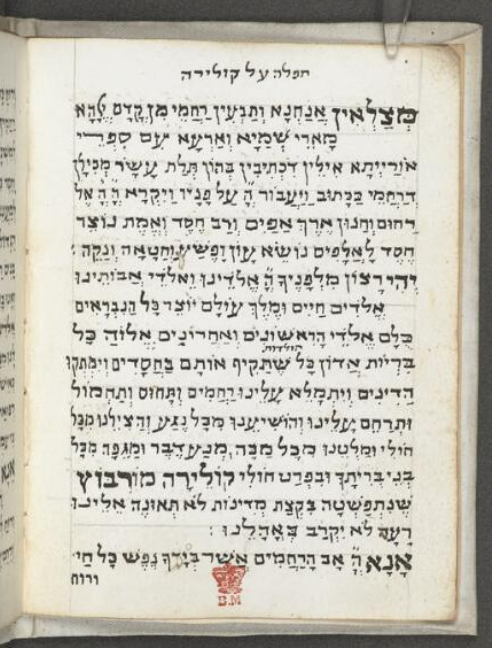 תפלה על קולירה
מְצַלְאִין אֲנַחְנָא וְתַבְעִין רַחֲמֵי מִן קֳדָם אֱלָהָא
מָארֵי שְׁמַיָא וְאַרְעָא עִם סִפְרֵי
אוֹרַיְיתָא אִילֵין דִכְתִיבִין בְּהוֹן תְּלַת עֲשַׂר מְכִילָן
דְרַחֲמֵי כַּכָּתוּב וַיַּעֲבוֹר ה' עַל פָּנָיו וַיִקְרָא ה' ה' אֵל
רַחוּם וְחַנוּן אֶרֶךְ אַפַּיִם וְרַב חֶסֶד וֶאֱמֶת נוֹצֵר
חֶסֶד לָאֲלָפִים נוֹשֵׂא עָוֹן וָפֶשַׁע וְחַטָאָה וְנַקֵה :
יְהִי רָצוֹן מִלְפָנֶיךָ ה' אֱלֹדֵינוּ וֵאלֹדֵי אֲבוֹתֵינוּ
אֱלֹדִים חַיִים וּמֶלֶךְ עוֹלָם יוֹצֵר כָּל הַנִבְרָאִים
כֻּלָם אֱלֹדֵי הָרִאשׁוֹנִים וְאַחֲרוֹנִים אֱלוֹהַ כָּל
תולדות
בְּרִיוֹת אֲדוֹן כָּל שֶׁתַּקִיף אוֹתָם בַּחֲסָדִים וְיִמְתְּקוּ
הַדִינִים וְיִתְמַלֵא עָלֵינוּ רַחֲמִים וְתָחוּס וְתַחְמוֹל
וּתְרַחֵם עָלֵינוּ וְהוֹשִׁיעֵנוּ מִכָּל נֶגַע וְהַצִילֵנוּ מִכָּל
חוֹלִי וּמַלְטֵנוּ מִכָּל מַכָּה, מְנַע דֶבֶר וּמַגֵפָה מִכָּל
בְּנֵי בְרִיתָךְ וּבִפְרַט חוֹלִי קוֹלֵירָה מוֹרְבּוֹץ
שֶׁנִתְפַּשְׁטָה בִּקְצַת מְדִינוֹת לֹא תְאוּנֶה אֵלֵינוּ
רָעָה לֹא יִקְרַב בְּאָהֳלֵנוּ :
אָנָא ה' אָב הָרַחֲמִים אֲשֶׁר בְּיָדְךָ נֶפֶשׁ כָּל חַי
ורוח
B.M